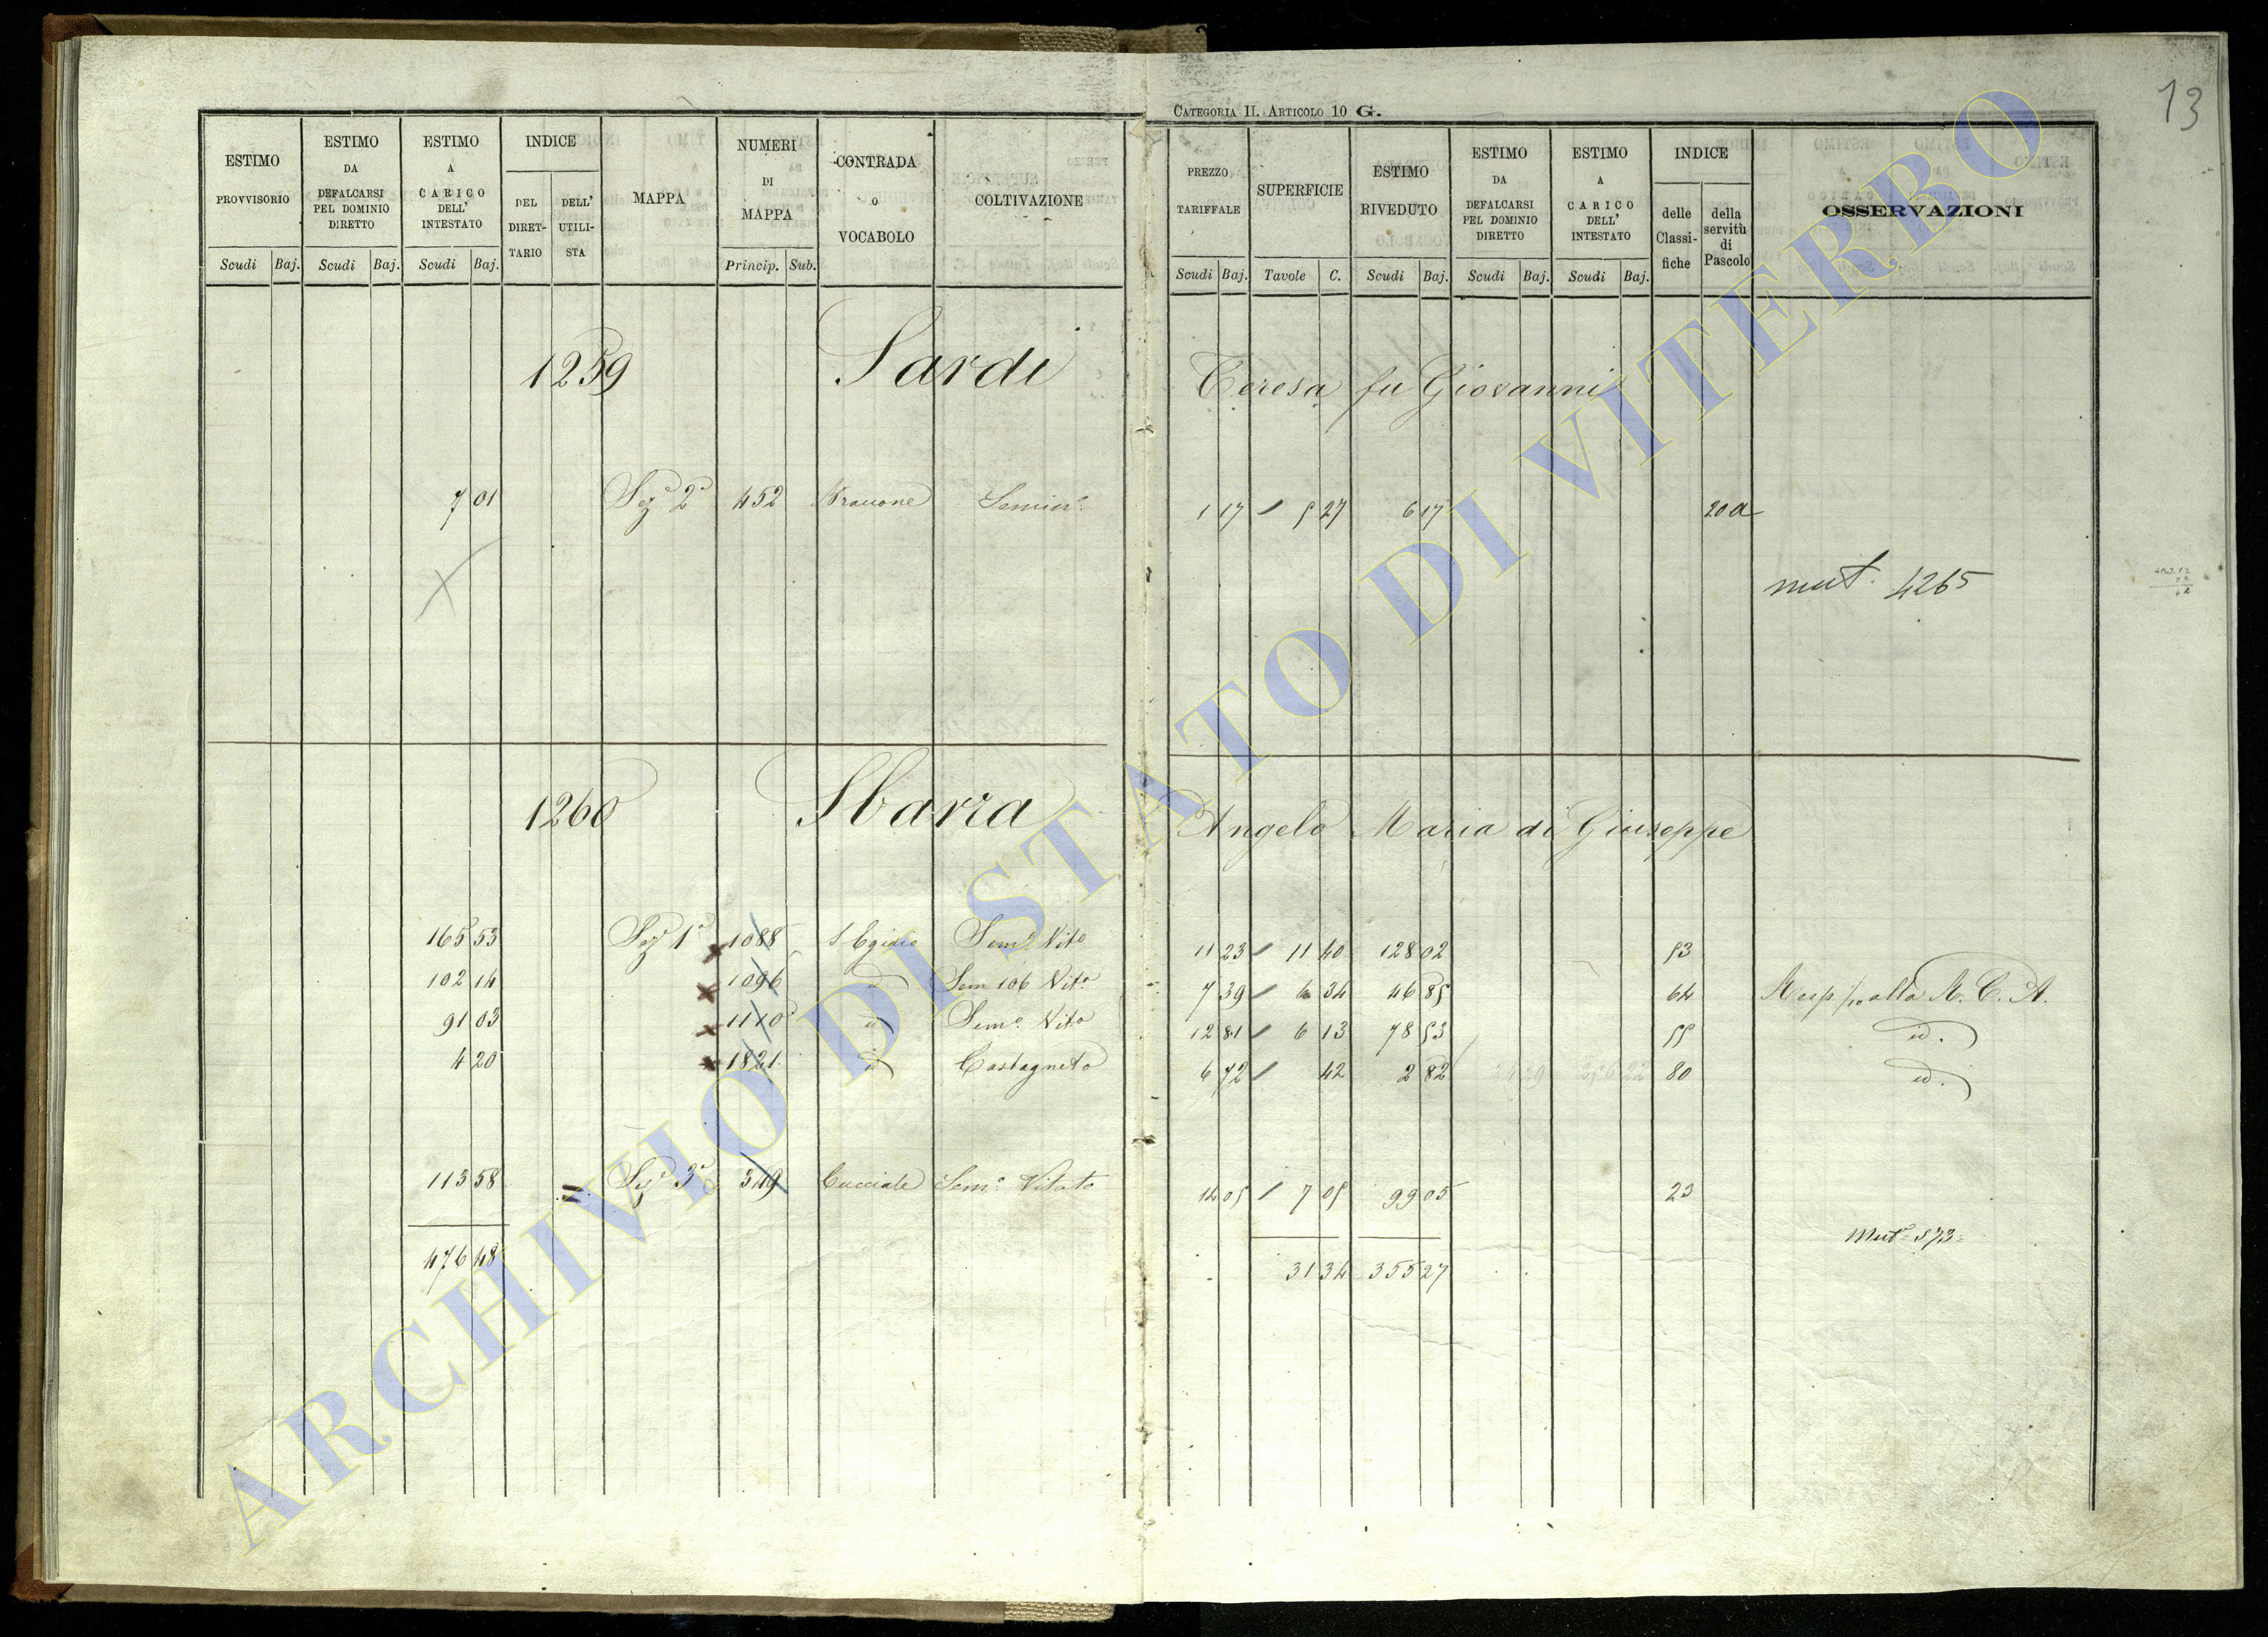 CATEGORIA II. ARTICOLO 10 G.
13
ESTIMO PROVVISORIO Scudi Baj.
ESTIMO DA DEFALCARSI PEL DOMINIO DIRETTO Scudi Baj.
ESTIMO A CARICO DELL' INTESTATO Scudi Baj.
INDICE DEL DIRET-TARIO DELL' UTILI-STA
MAPPA
NUMERI DI MAPPA Princip. Sub.
CONTRADA O VOCABOLO
COLTIVAZIONE
PREZZO TARIFFALE Scudi Baj.
SUPERFICIE Tavole C.
ESTIMO RIVEDUTO Scudi Baj.
ESTIMO DA DEFALCARSI PEL DOMINIO DIRETTO Scudi Baj.
ESTIMO A CARICO DELL' INTESTATO Scudi Baj.
INDICE delle Classi-fiche della servitù di Pascolo
OSSERVAZIONI
1259 Sardi Teresa fu Giovanni
7 01 Sez.e 2a 452 Semin.o 1 17 5 27 6 17 20 a
mut. 4265
1260 Sbarra Angelo Maria di Giuseppe
165 53 Sez.e 1a 1088 S. Egidio Sem.o Vito 11 23 11 40 128 02 53
102 14 1096 id Sem 106 Vito 7 39 6 34 46 85 64 Resp. alla R. C. A.
91 03 1110 id Sem.o Vito 12 81 6 13 78 53 55 id.
4 20 1821 id Castagneto 6 72 42 2 82 80 id.
113 58 Sez.e 3a 349 Cucciale Sem.o Vitato 14 05 7 05 99 05 23
476 48 31 34 355 27
Mut.e 573
ARCHIVIO DI STATO DI VITERBO